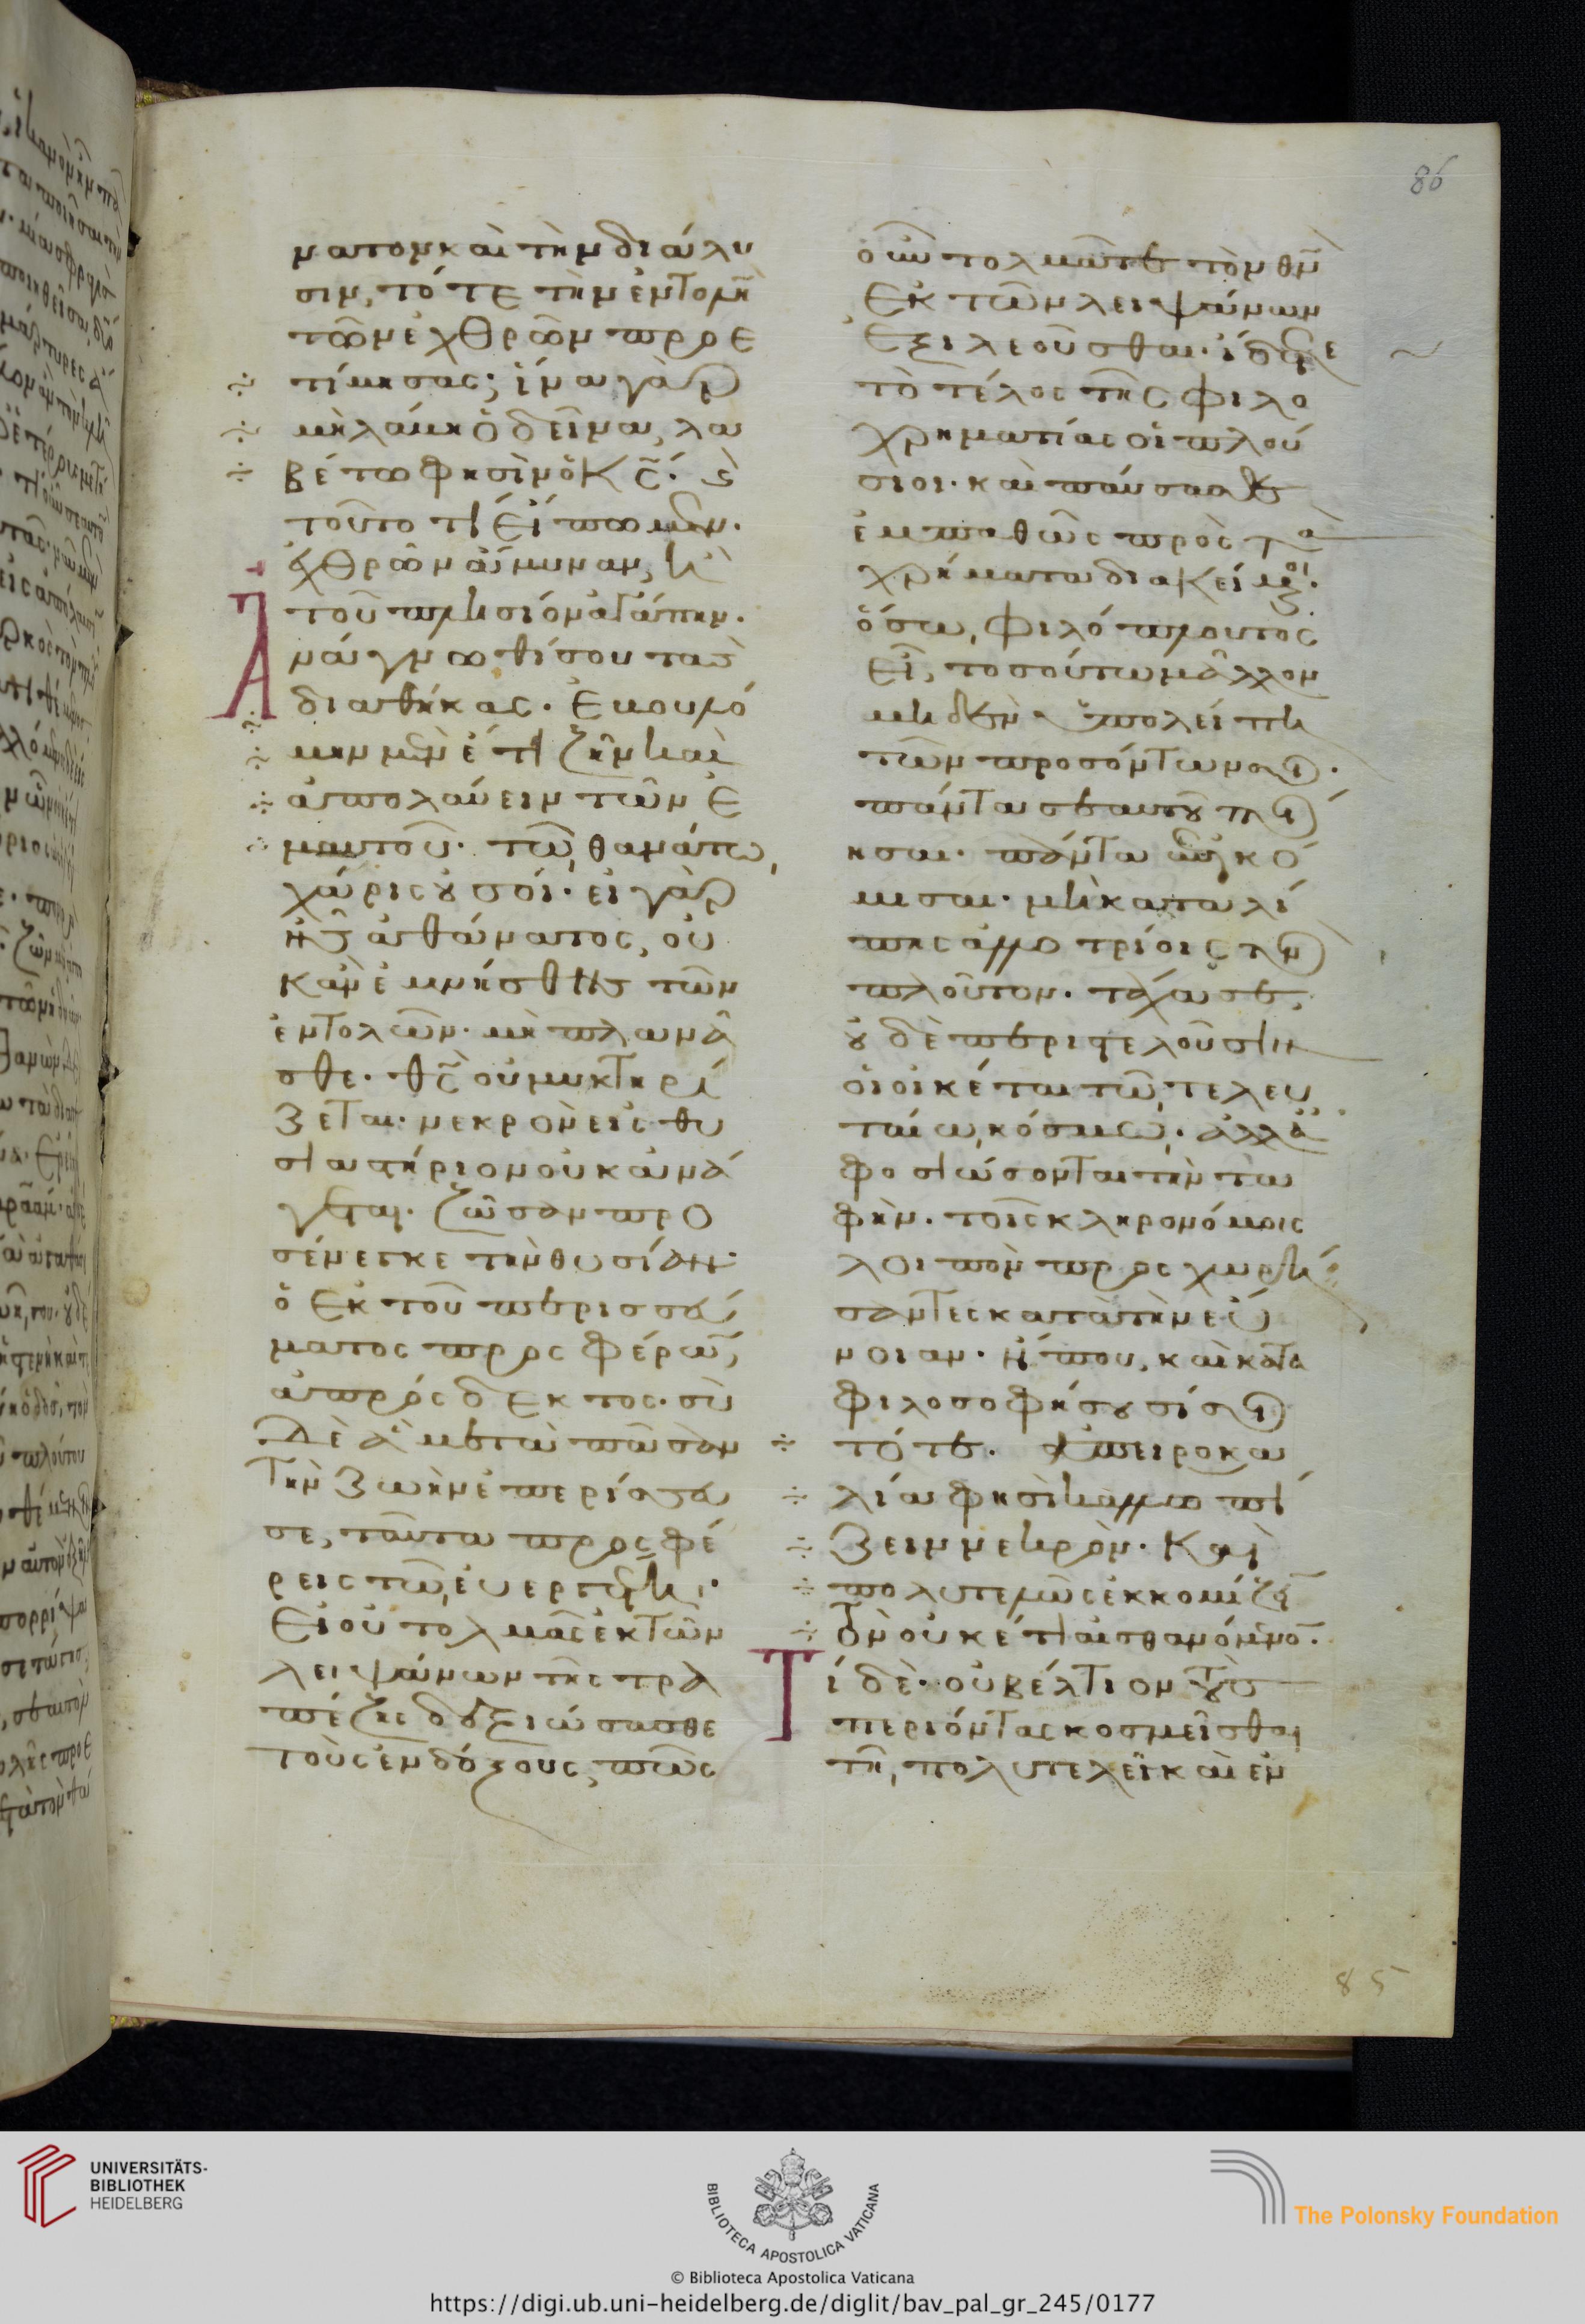 86
ματος καὶ τὴν διάλυ
σιν, τότε τὴν ἐντολὴν
τῶν ἐχθρῶν προε
τίμησας; ἵνα γὰρ
μὴ λάμη ὁ δεῖνα, λα
βέτω φησὶν ὁ κ̅ς̅.
τοῦτο τί εἴπωμεν.
ἐχθρῶν ἄμυναν, ἢ
τοῦ πλησίον ἀγάπην.
ἀνάγνωθί σου τὰς
διαθήκας. ἐβουλό
μην μὲν ἔτι ζῆν καὶ
ἀπολαύειν τῶν ἐ
μαυτοῦ. τῶ θανάτω,
χάρις οὐ σοί. εἰ γὰρ
ἦς ἀθάνατος, οὐ
κ ἂν ἐμνήσθης τῶν
ἐντολῶν. μὴ πλανᾶ
σθε. θ̅ς̅ οὐ μυκτηρί
ζεται. νεκρὸν εἰς θυ
σιαστήριον οὐκ ἀνά
γεται. ζῶσαν προ
σένεγκε τὴν θυσίαν.
ὁ ἐκ τοῦ περισσεύ
ματος προσφέρων,
ἀπρόσδεκτος. σὺ
δὲ ἃ μετὰ πᾶσαν
τὴν ζωὴν ἐπερίσσευ
σε, ταῦτα προσφέ
ρεις τῶ εὐεργέτη.
εἰ οὐ τολμᾶς ἐκ τῶν
λειψάνων τῆς τρα
πέζης δεξιώσασθαι
τοὺς ἐνδόξους, πῶς
οὖν τολμᾶτε τὸν θ̅ν̅
ἐκ τῶν λειψάνων
ἐξιλεοῦσθαι. ἴδετε
τὸ τέλος τῆς φιλο
χρηματίας οἱ πλού
σιοι. καὶ παύσασθε
ἐμπαθῶς πρὸς τὰ
χρήματα διακείμενοι.
ὅσω φιλόπλουτος
εἶ, τοσούτω μᾶλλον
μηδὲν ὑπολείπη
τῶν προσόντων σοι.
πάντα σεαυτοῦ ποί
ησαι. πάντα συγκό
μισαι. μὴ καταλί
πης ἀλλοτρίοις τὸν
πλοῦτον. τάχα σε,
οὐδὲ περιστελοῦσιν
οἱ οἰκέται τῶ τελευ
ταίω κόσμω. ἀλλὰ
φοσιώσονται τὴν τα
φὴν. τοῖς κληρονόμοις
λοιπὸν πρὸς χαρι
σάντες κατὰ τὴν εὔ
νοιαν. ἤ που, καὶ κατα
φιλοσοφήσουσί σου
τότε. ἀπειροκα
λία φησὶ καλλωπί
ζειν νεκρὸν. καὶ
πολυτελῶς ἐκκομίζειν
τὸν οὐκέτι αἰσθανόμενον.
Τί δὲ. οὐ βέλτιον τοὺς
περιόντας κοσμεῖσθαι
τῆ πολυτελεῖ καὶ ἐν
85
UNIVERSITÄTS-
BIBLIOTHEK
HEIDELBERG
BIBLIOTECA APOSTOLICA VATICANA
The Polonsky Foundation
© Biblioteca Apostolica Vaticana
https://digi.ub.uni-heidelberg.de/diglit/bav_pal_gr_245/0177